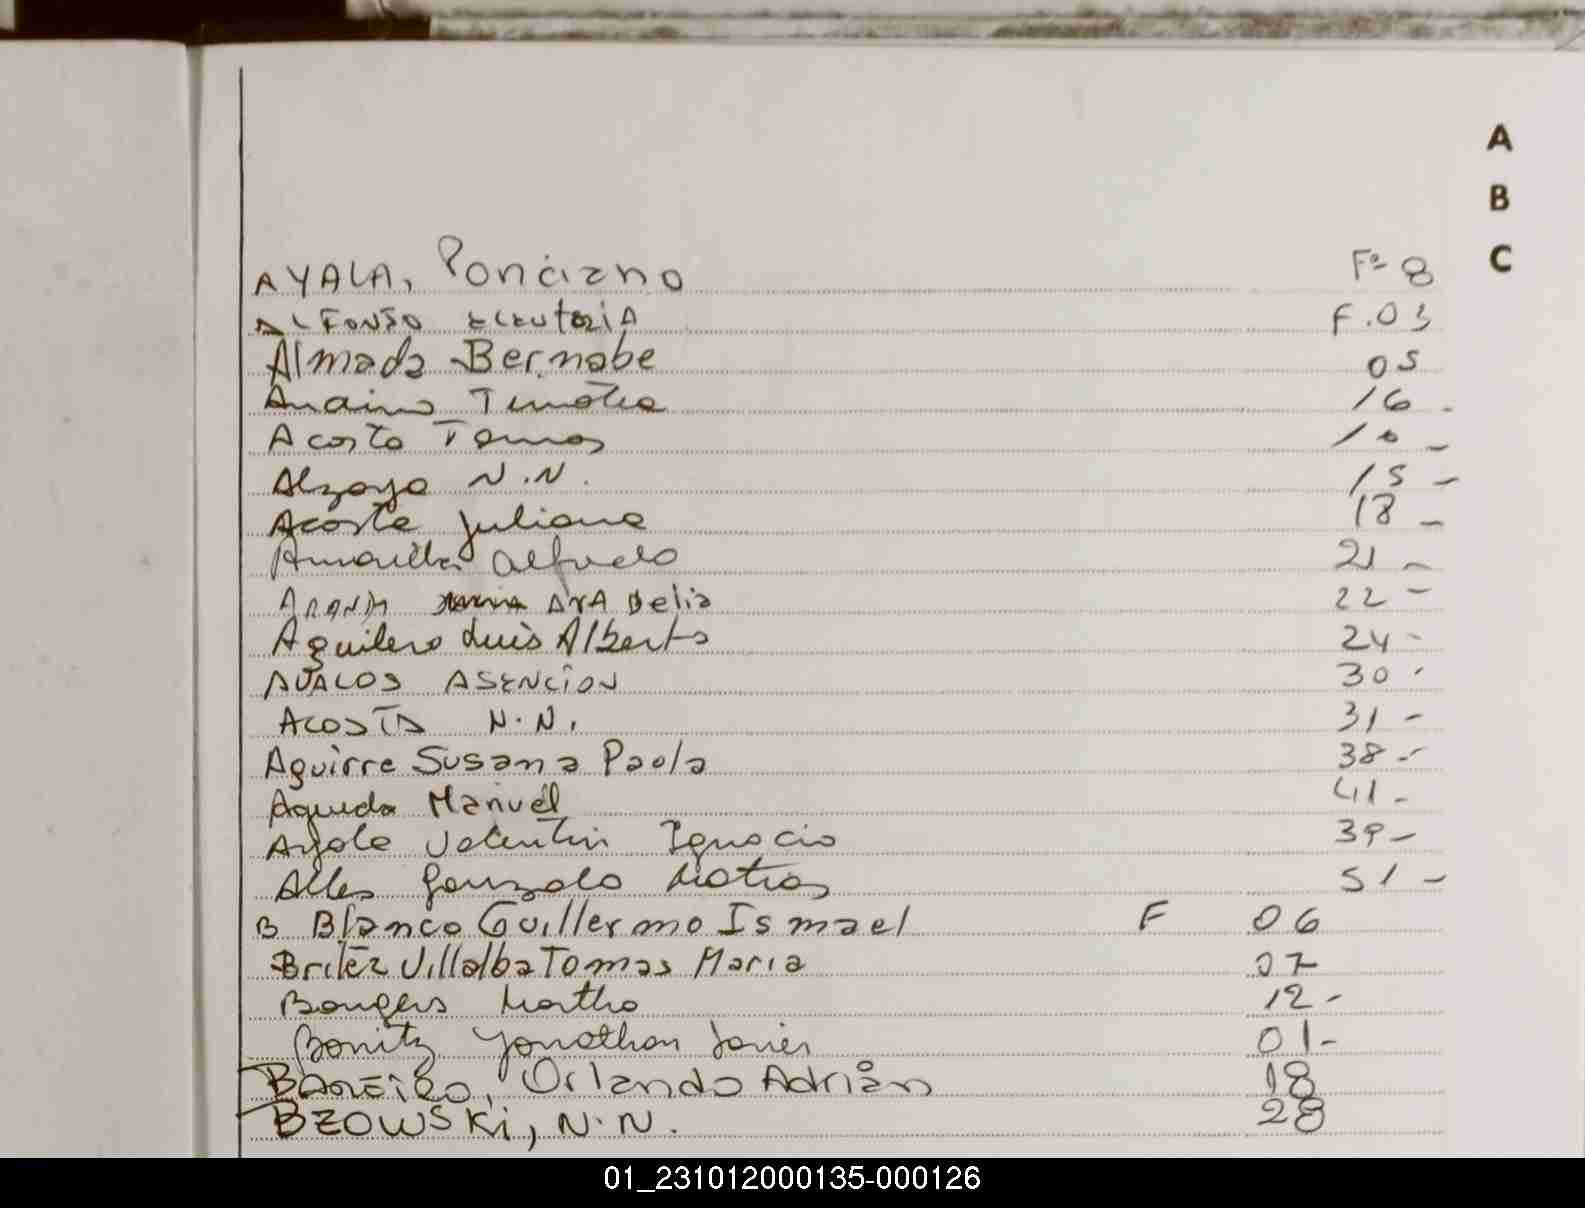 A
B
C
AYALA, Ponciano Fº 8
ALFONSO ELEUTERIA F. 03
Almada Bernabe 05
Timotea 16 -
Acosta Tomas 10 -
Alzaya N.N. 15 -
Acosta Juliana 18 -
Amarilla Alfredo 21 -
ARANDA ANA Delia 22 -
Aguilera Luis Alberto 24 -
AVALOS ASENCION 30 -
ACOSTA N.N. 31 -
Aguirre Susana Paola 38 -
Agueda Manuel 41 -
Ayala Valentin Ignacio 39 -
Alles Gonzalo Matias 51 -
B Blanco Guillermo Ismael F 06
Britez Villalba Tomas Maria 07
Bongers Martha 12 -
Bonitz Jonathan Javier 01 -
BAREIRO, Orlando Adrián 18
BZOWSKi, N.N. 28
01_231012000135-000126